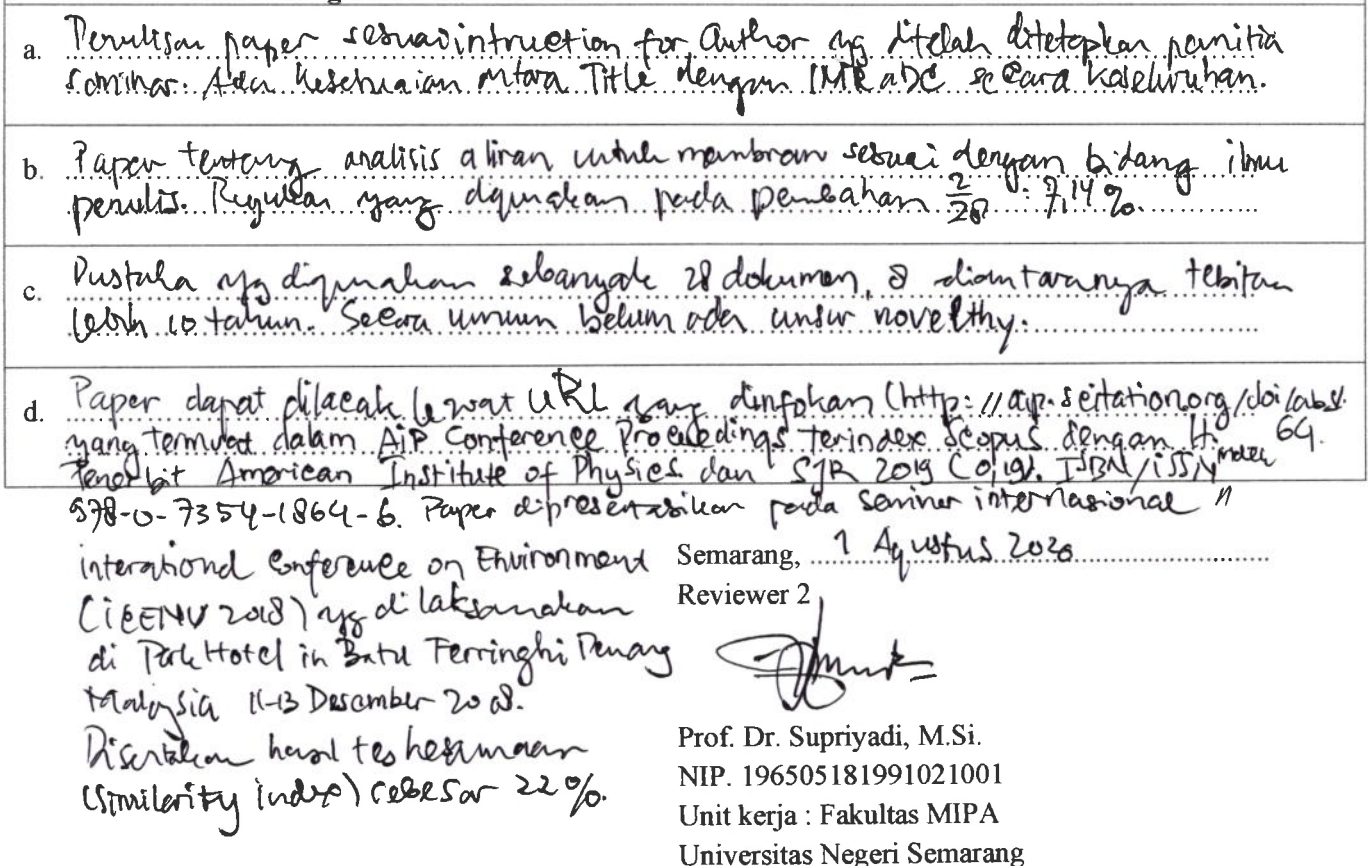 a. Penulisan paper sesuai intruction for Author yg ditelah ditetapkan panitia
seminar. Ada kesesuaian antara Title dengan IMRaDC secara keseluruhan.
b. Paper tentang analisis aliran untuk membran sesuai dengan bidang ilmu
penulis. Rujukan yang digunakan pada pembahan 2/28 : 7,14 %.
c. Pustaka yg digunakan sebanyak 28 dokumen, 8 diantaranya tebitan
lebih 10 tahun. Secara umum belum ada unsur novelthy.
d. Paper dapat dilacak lewat URL yang dinfokan (http://aip.scitation.org/doi/abs/.
yang termuat dalam AIP Conference Proceedings terindex Scopus dengan H. index 64.
Penerbit American Institute of Physics dan SJR 2019 (0,19). ISBN/ISSN
978-0-7354-1864-6. Paper dipresentasikan pada seminar internasional "
interational Conference on Environment
(ICENV 2018) yg dilaksanakan
di Park Hotel in Batu Ferringhi Penang
Malaysia 11-13 Desember 2018.
Disertakan hasil tes kesamaan
(similarity index) sebesar 22%.
Semarang, 1 Agustus 2020
Reviewer 2
Prof. Dr. Supriyadi, M.Si.
NIP. 196505181991021001
Unit kerja : Fakultas MIPA
Universitas Negeri Semarang